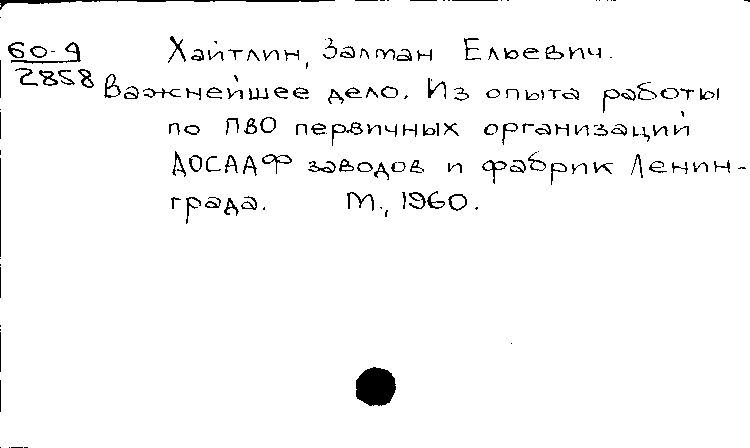 60-9
2858
Хайтлин, Залман Ельевич.
Важнейшее дело. Из опыта работы
по ПВО первичных организаций
ДОСААФ заводов и фабрик Ленин-
града. М., 1960.